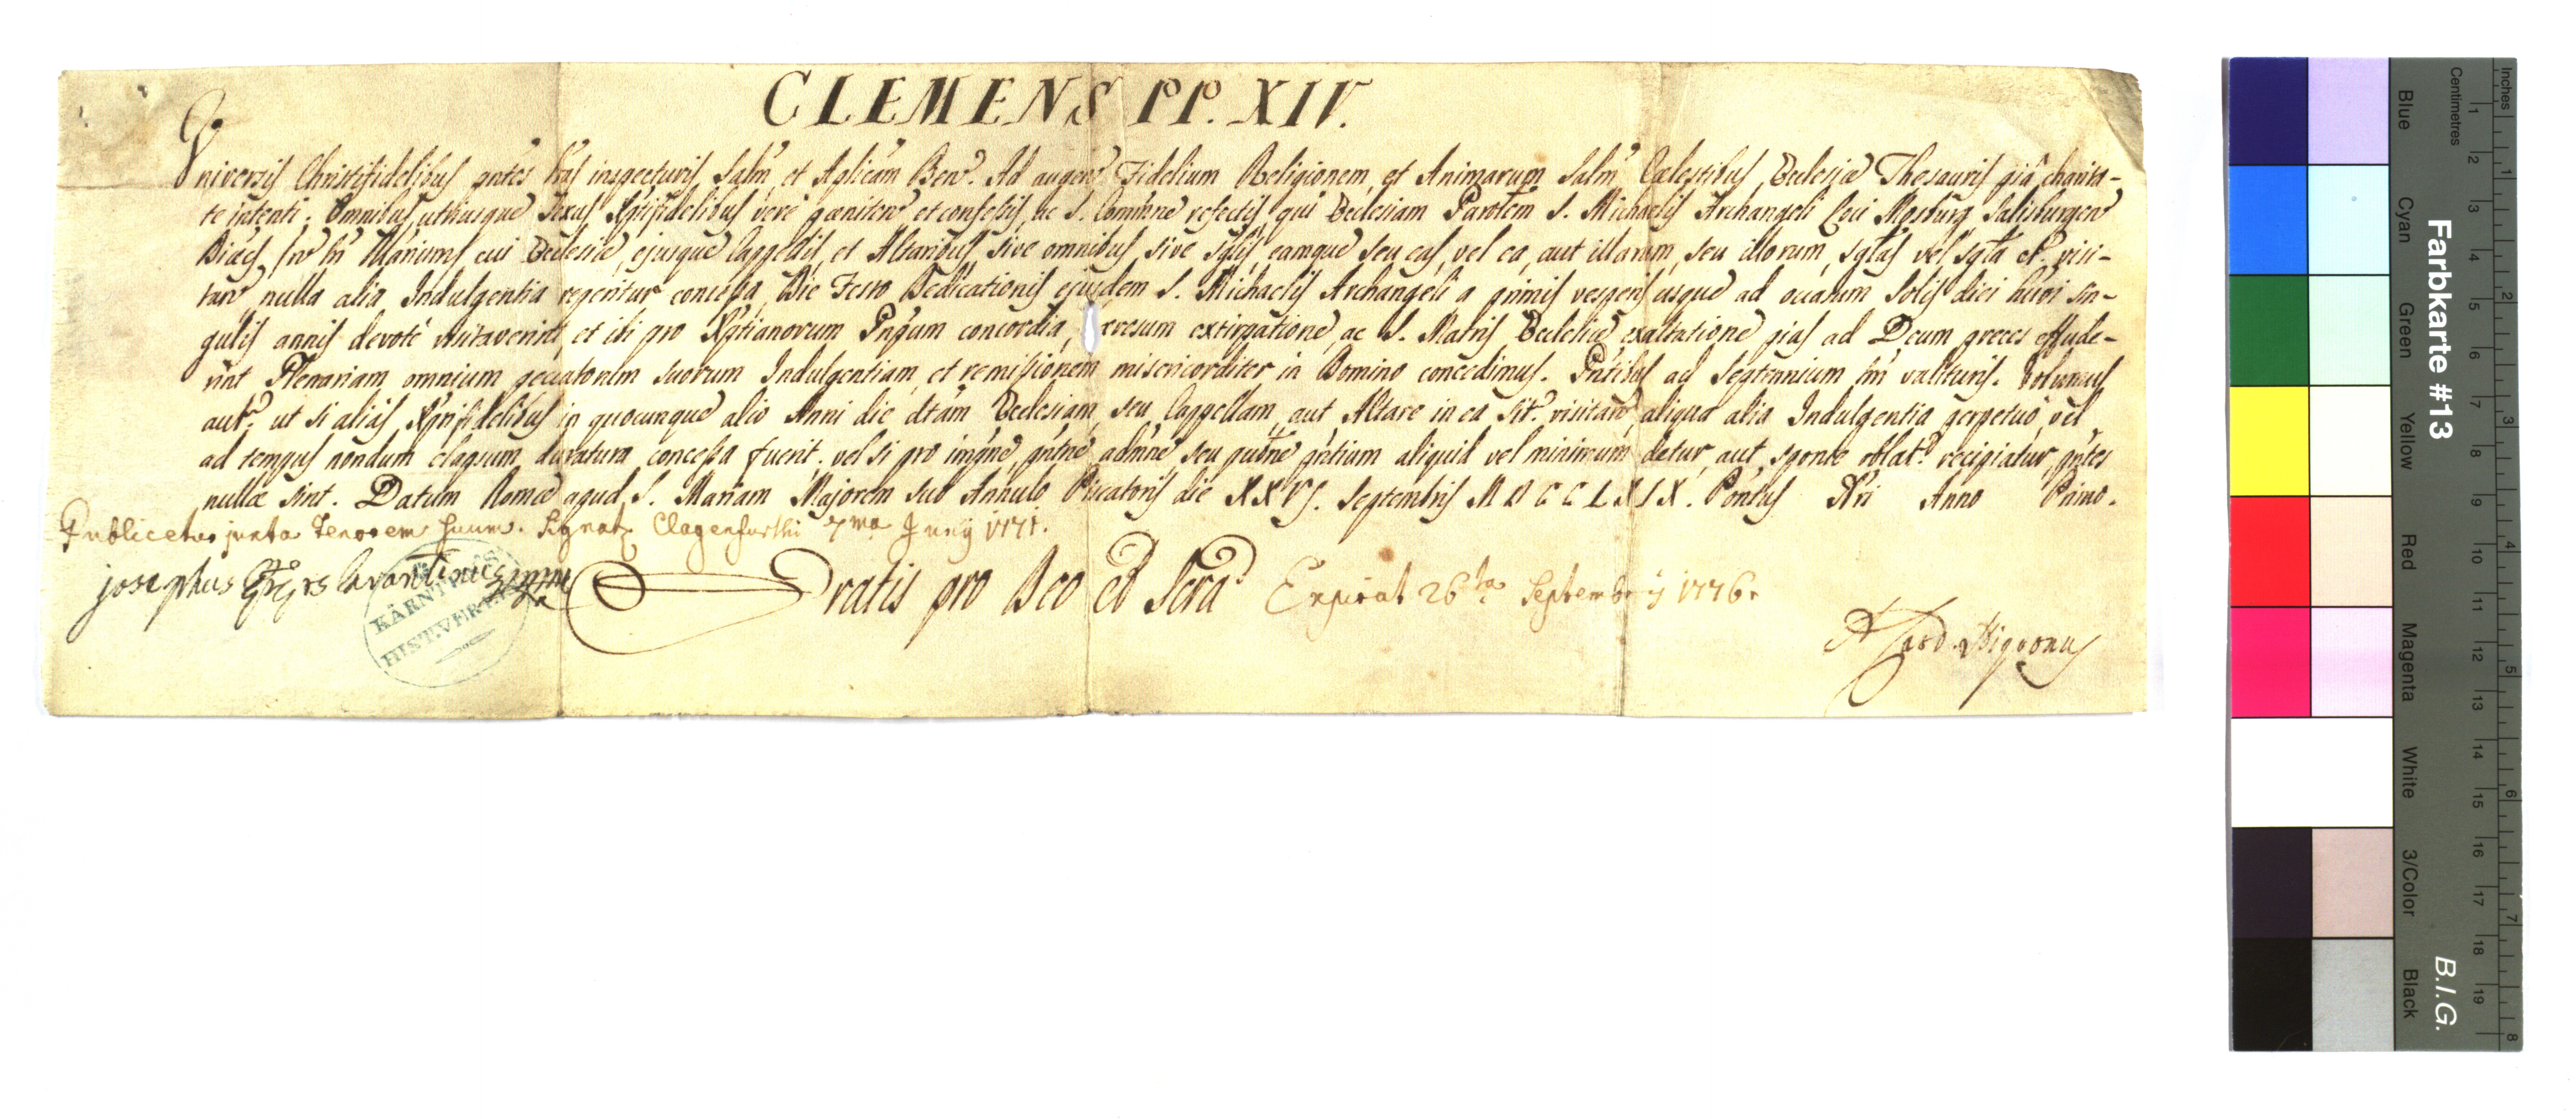 CLEMENS PP. XIV.
Universis Christifidelibus pntes Lras inspecturis Salm, et Aplicam Ben. Ad augend Fidelium Religionem, et Animarum Salm Cælestibus Ecclesiæ Thesauris piâ charita-
te intenti. Omnibus utriusque Sexus Xptifidelibus verè pœniten et confessis, ac S. Commne refectis, qui Ecclesiam Parolem S. Michaelis Archangeli Loci Mosburg Salisburgen
Diæcs, cui Ecclesiæ, ejusque Cappellis, et Altaribus, sive omnibus, sive sglis, eamque seu eas, vel ea, aut illarum, seu illorum, sglas vel sgla et visi-
tan nulla alia Indulgentia reperitur concessa, Die Festo Dedicationis ejusdem S. Michaelis Archangeli a primis vesperis usque ad occasum Solis diei hmoi sin-
gulis annis devotè visitaverint, et ibi pro Xptianorum Pnpum concordia, hæresum extirpatione, ac S. Matris Ecclesiæ exaltatione pias ad Deum preces effude-
rint Plenariam omnium peccatorum suorum Indulgentiam, et remissionem misericorditer in Domino concedimus. Pntibus ad Septennium tm valituris. Volumus
aut, ut si aliàs Xptifidelibus in quocunque alio Anni die dtam Ecclesiam, seu Cappellam, aut Altare in ea sit. visitan aliqua alia Indulgentia perpetuò, vel
ad tempus nondum elapsum duratura concessa fuerit, vel si pro impne, pntne, admne, seu publne pntium aliquid vel minimum detur, aut sponte oblat. recipiatur pntes
nullæ sint. Datum Romæ apud S. Mariam Majorem sub Annulo Piscatoris die XXVI. Septembris MDCCLXIX. Pontus Nri Anno Primo.
Publicetur juxta Tenorem suum. Signat. Clagenfurthi 7ma Junÿ 1771.
josephus Lavantinus
KÄRNTN.
HIST.VEREIN
Gratis pro Deo et Scra Expirat 26ta Septembris 1776.
A Card. Nigronus
Farbkarte #13
B.I.G.
Inches 1 2 3 4 5 6 7 8
Centimetres 1 2 3 4 5 6 7 8 9 10 11 12 13 14 15 16 17 18 19
Blue Cyan Green Yellow Red Magenta White 3/Color Black